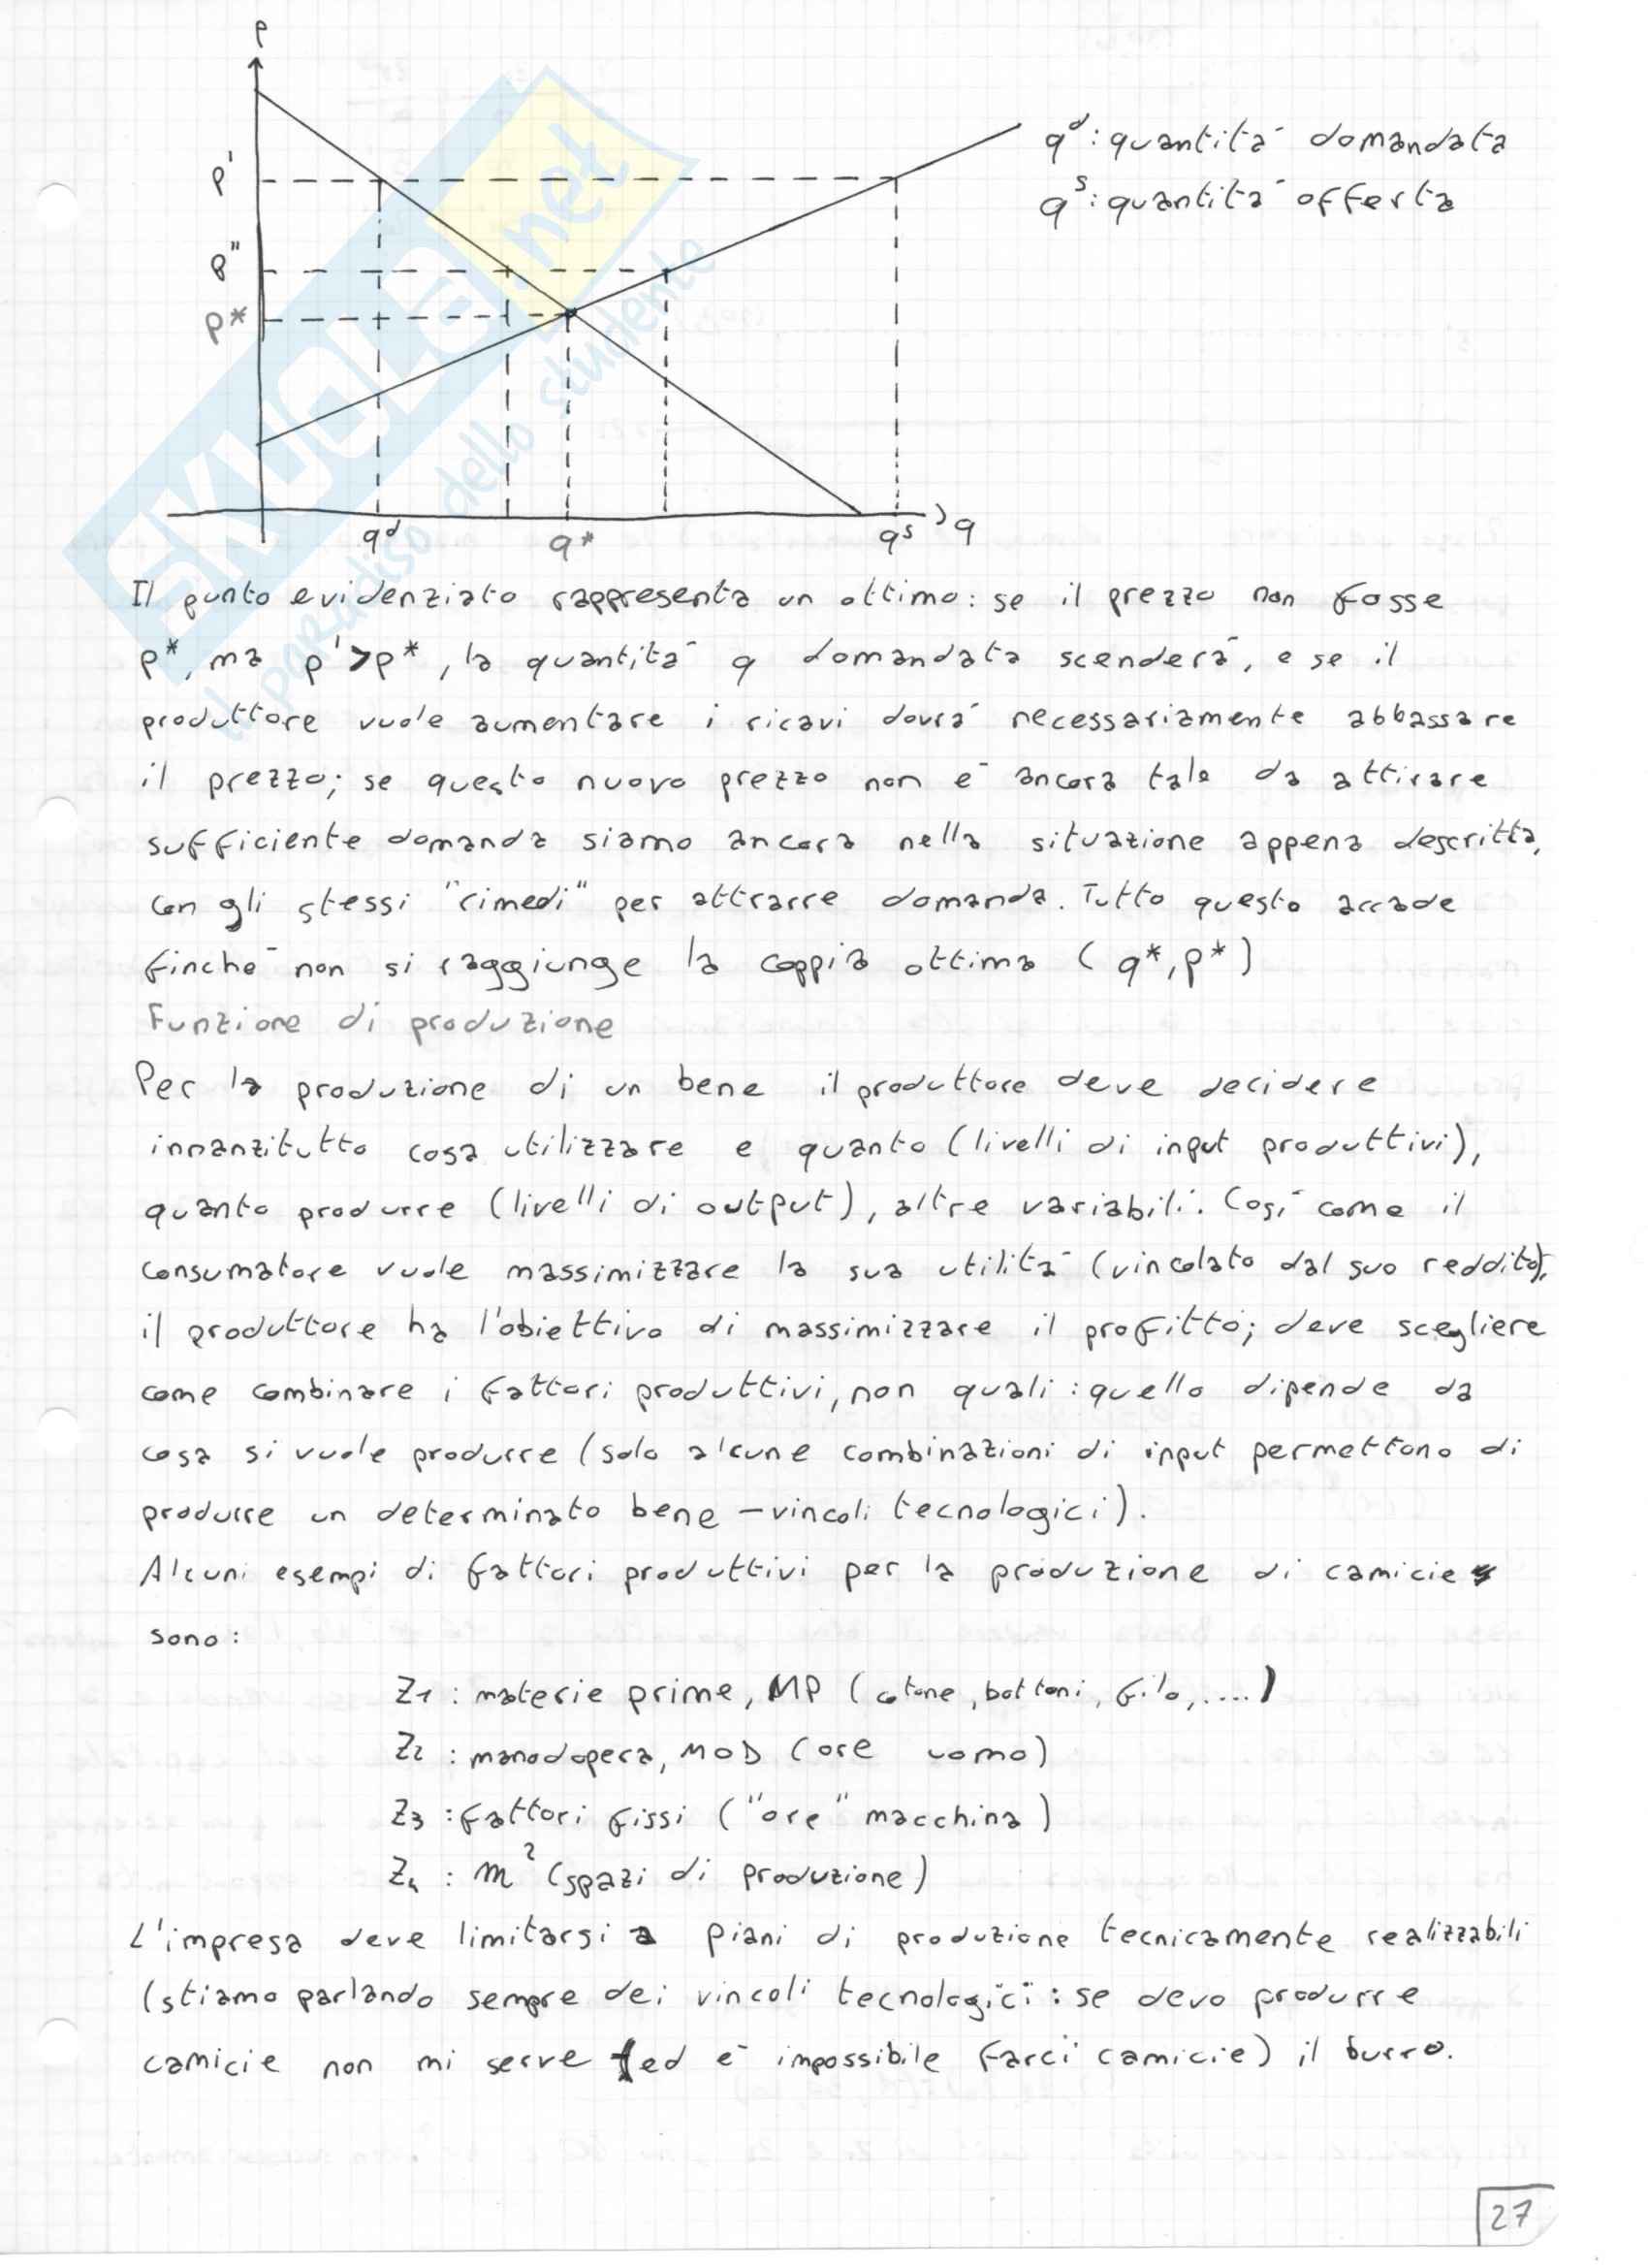 p
p'
p"
p*
qᵈ : quantità domandata
qˢ : quantità offerta
qᵈ
q*
qˢ
q
SKUOLA.net
il paradiso dello studente
Il punto evidenziato rappresenta un ottimo: se il prezzo non fosse
p*, ma p'>p*, la quantità q domandata scenderà, e se il
produttore vuole aumentare i ricavi dovrà necessariamente abbassare
il prezzo; se questo nuovo prezzo non è ancora tale da attirare
sufficiente domanda siamo ancora nella situazione appena descritta,
con gli stessi "rimedi" per attrarre domanda. Tutto questo accade
finchè non si raggiunge la coppia ottima (q*,p*)
Funzione di produzione
Per la produzione di un bene il produttore deve decidere
innanzitutto cosa utilizzare e quanto (livelli di input produttivi),
quanto produrre (livelli di output), altre variabili. Così come il
consumatore vuole massimizzare la sua utilità (vincolato dal suo reddito),
il produttore ha l'obiettivo di massimizzare il profitto; deve scegliere
come combinare i fattori produttivi, non quali: quello dipende da
cosa si vuole produrre (solo alcune combinazioni di input permettono di
produrre un determinato bene - vincoli tecnologici).
Alcuni esempi di fattori produttivi per la produzione di camicie
sono:
Z₁ : materie prime, MP (cotone, bottoni, filo,....)
Z₂ : manodopera, MOD (ore uomo)
Z₃ : fattori fissi ("ore" macchina)
Z₄ : m² (spazi di produzione)
L'impresa deve limitarsi a piani di produzione tecnicamente realizzabili
(stiamo parlando sempre dei vincoli tecnologici: se devo produrre
camicie non mi serve (ed è impossibile farci camicie) il burro.
27